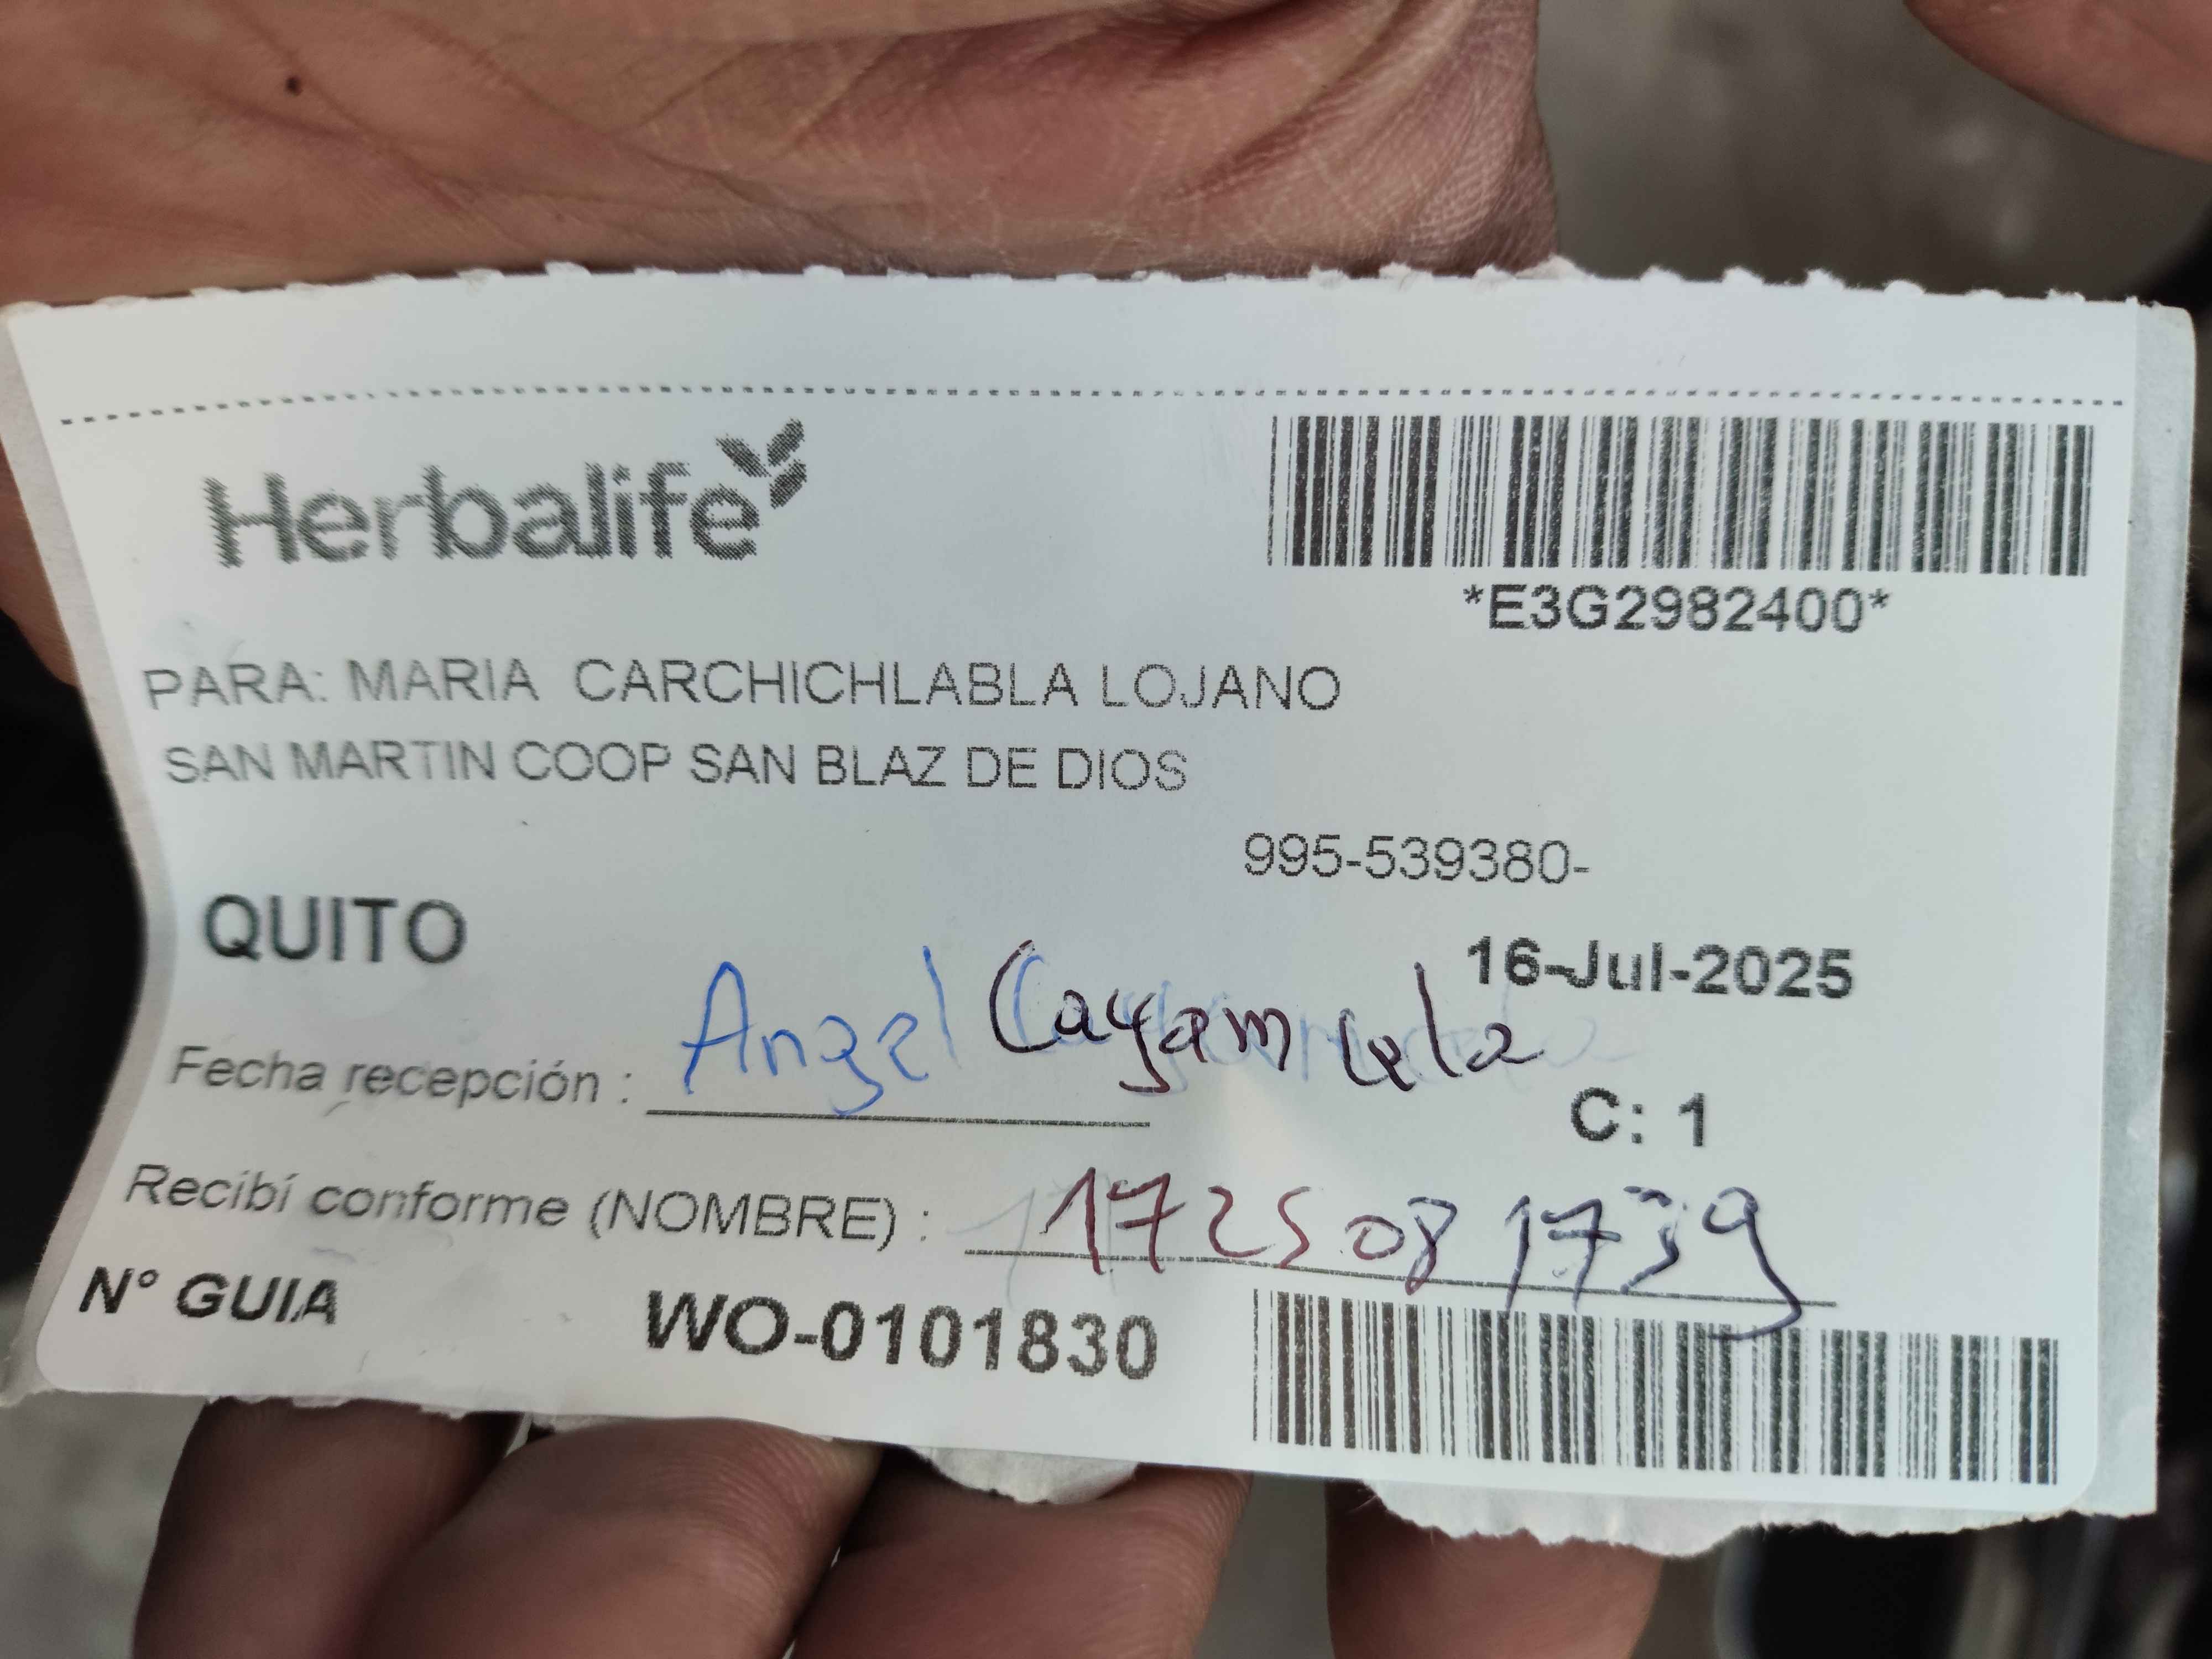 Herbalife
*E3G2982400*
PARA: MARIA CARCHICHLABLA LOJANO
SAN MARTIN COOP SAN BLAZ DE DIOS
995-539380-
QUITO
16-Jul-2025
Fecha recepción : Angel Cayamcela
C: 1
Recibí conforme (NOMBRE) : 1725081739
N° GUIA WO-0101830